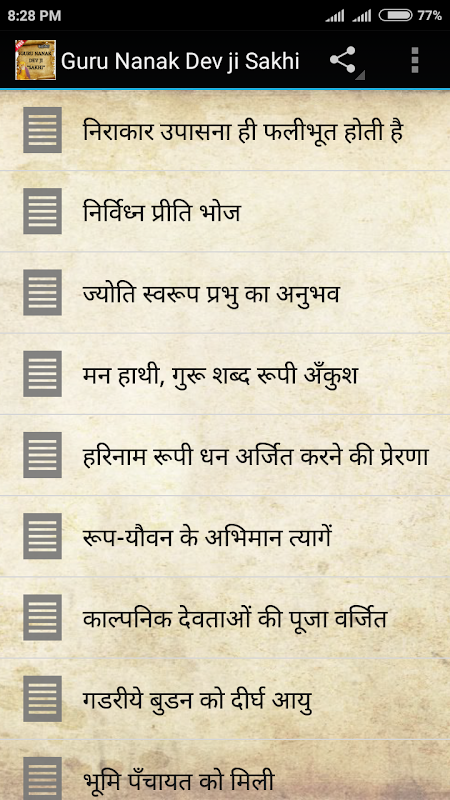 8:28 PM
77%
GURU NANAK
DEV JI
"SAKHI"
Guru Nanak Dev ji Sakhi
निराकार उपासना ही फलीभूत होती है
निर्विध्न प्रीति भोज
ज्योति स्वरूप प्रभु का अनुभव
मन हाथी, गुरू शब्द रूपी अँकुश
हरिनाम रूपी धन अर्जित करने की प्रेरणा
रूप-यौवन के अभिमान त्यागें
काल्पनिक देवताओं की पूजा वर्जित
गडरीये बुडन को दीर्घ आयु
भूमि पँचायत को मिली